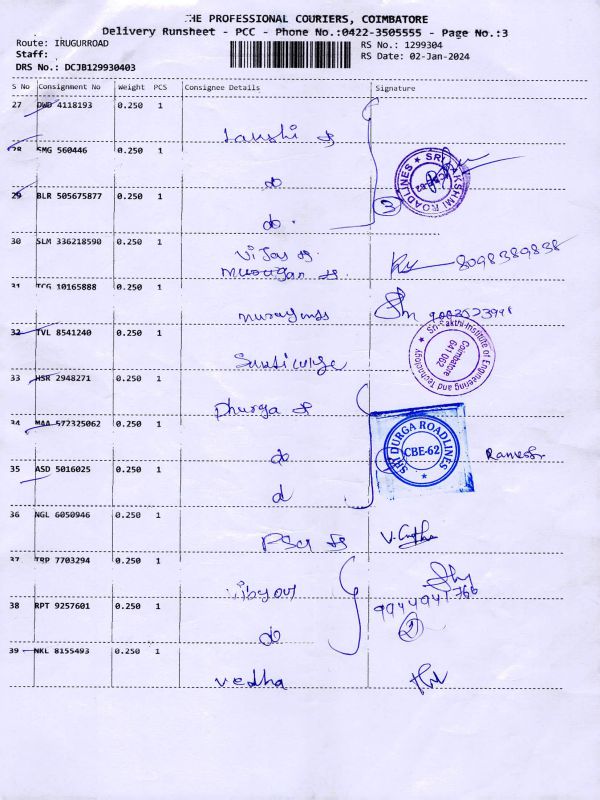 THE PROFESSIONAL COURIERS, COIMBATORE
Delivery Runsheet - PCC - Phone No.:0422-3505555 - Page No.:3
Route: IRUGURROAD
RS No.: 1299304
Staff:
RS Date: 02-Jan-2024
DRS No.: DCJB129930403
S No Consignment No Weight PCS Consignee Details Signature
27 DWD 4118193 0.250 1
28 SMG 560446 0.250 1
SRI LAKSHMI ROADLINES
do
29 BLR 505675877 0.250 1
3
do
30 SLM 336218590 0.250 1
8098389838
31 TCG 10165888 0.250 1
32 TVL 8541240 0.250 1
Sri Sakthi Institute of Engineering and Technology
Coimbatore
641 062
33 HSR 2948271 0.250 1
Dhurga
34 MAA 572325062 0.250 1
SRI DURGA ROADLINES
CBE-62
do
35 ASD 5016025 0.250 1
36 NGL 6050946 0.250 1
37 TRP 7703294 0.250 1
38 RPT 9257601 0.250 1
2
do
39 NKL 8155493 0.250 1
vedha